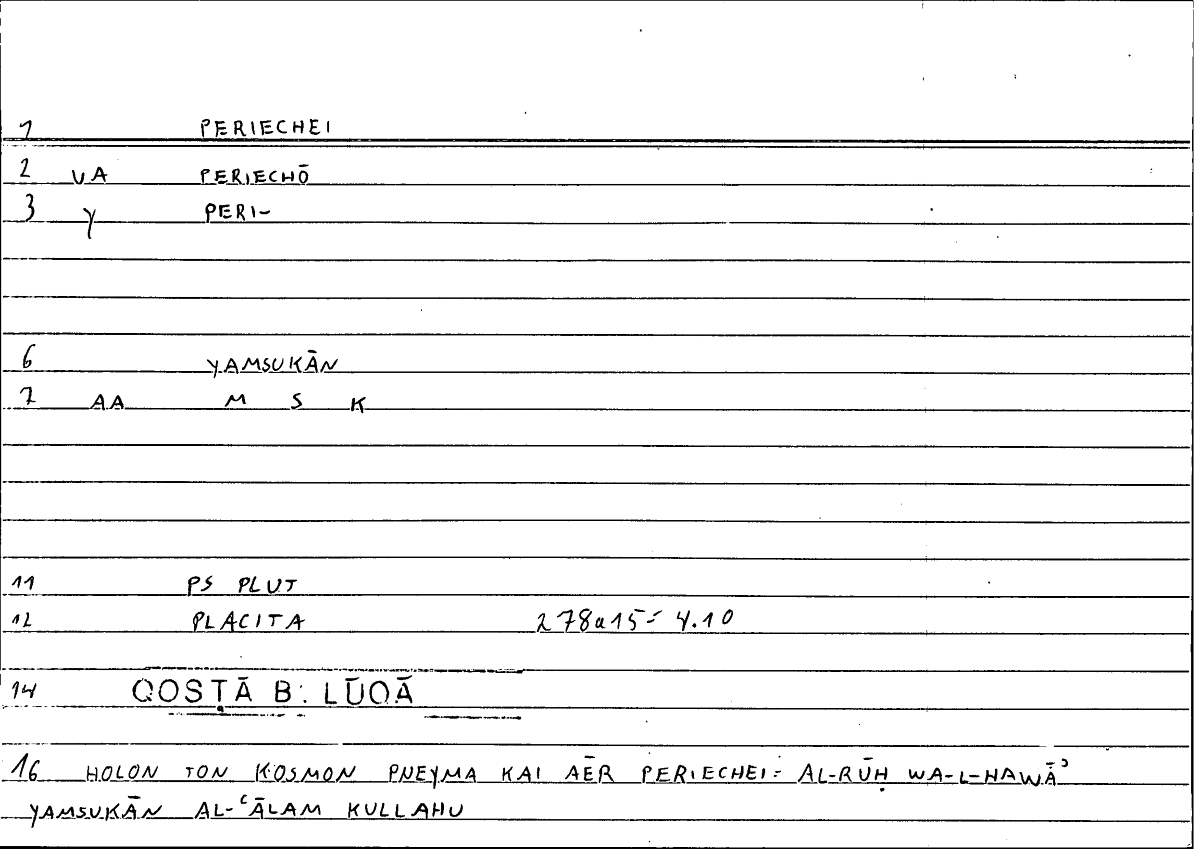 1 PERIECHEI
2 VA PERIECHŌ
3 Y PERI-
6 YAMSUKĀN
7 AA M S K
11 PS PLUT
12 PLACITA 278a15= 4.10
14 QOSṬĀ B. LŪQĀ
16 HOLON TON KOSMON PNEYMA KAI AĒR PERIECHEI: AL-RŪḤ WA-L-HAWĀʾ
YAMSUKĀN AL-ʿĀLAM KULLAHU